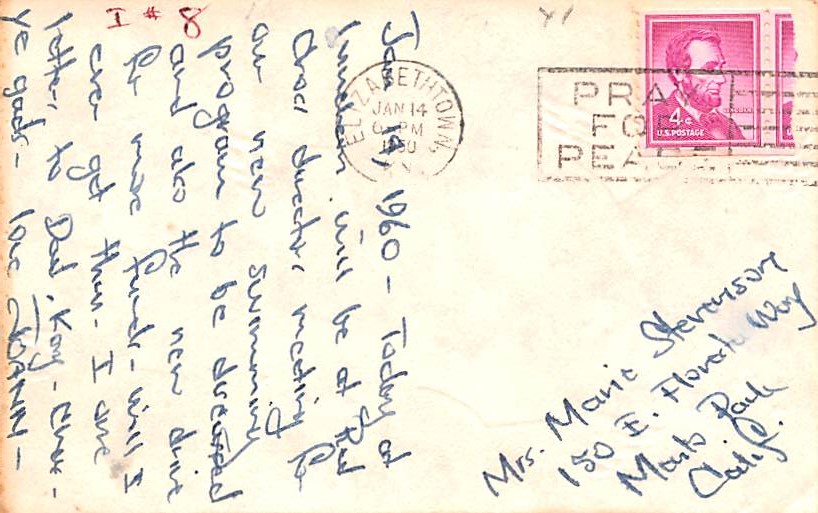 I # 8
Jan 14, 1960 - Today at
luncheon will be at Red
Cross directors meeting for
our new swimming
program to be discussed
and also the new drive
for more funds - will I
ever get thru - I owe
letters to Dad, Kay - Chas -
ye gods - love JOANN -
ELIZABETHTOWN,
JAN 14
PM
1960
PRAY
FOR
PEACE
LINCOLN
4¢
U.S. POSTAGE
Mrs. Marie Stevenson
150 E. Floresta Way
Menlo Park
Calif.